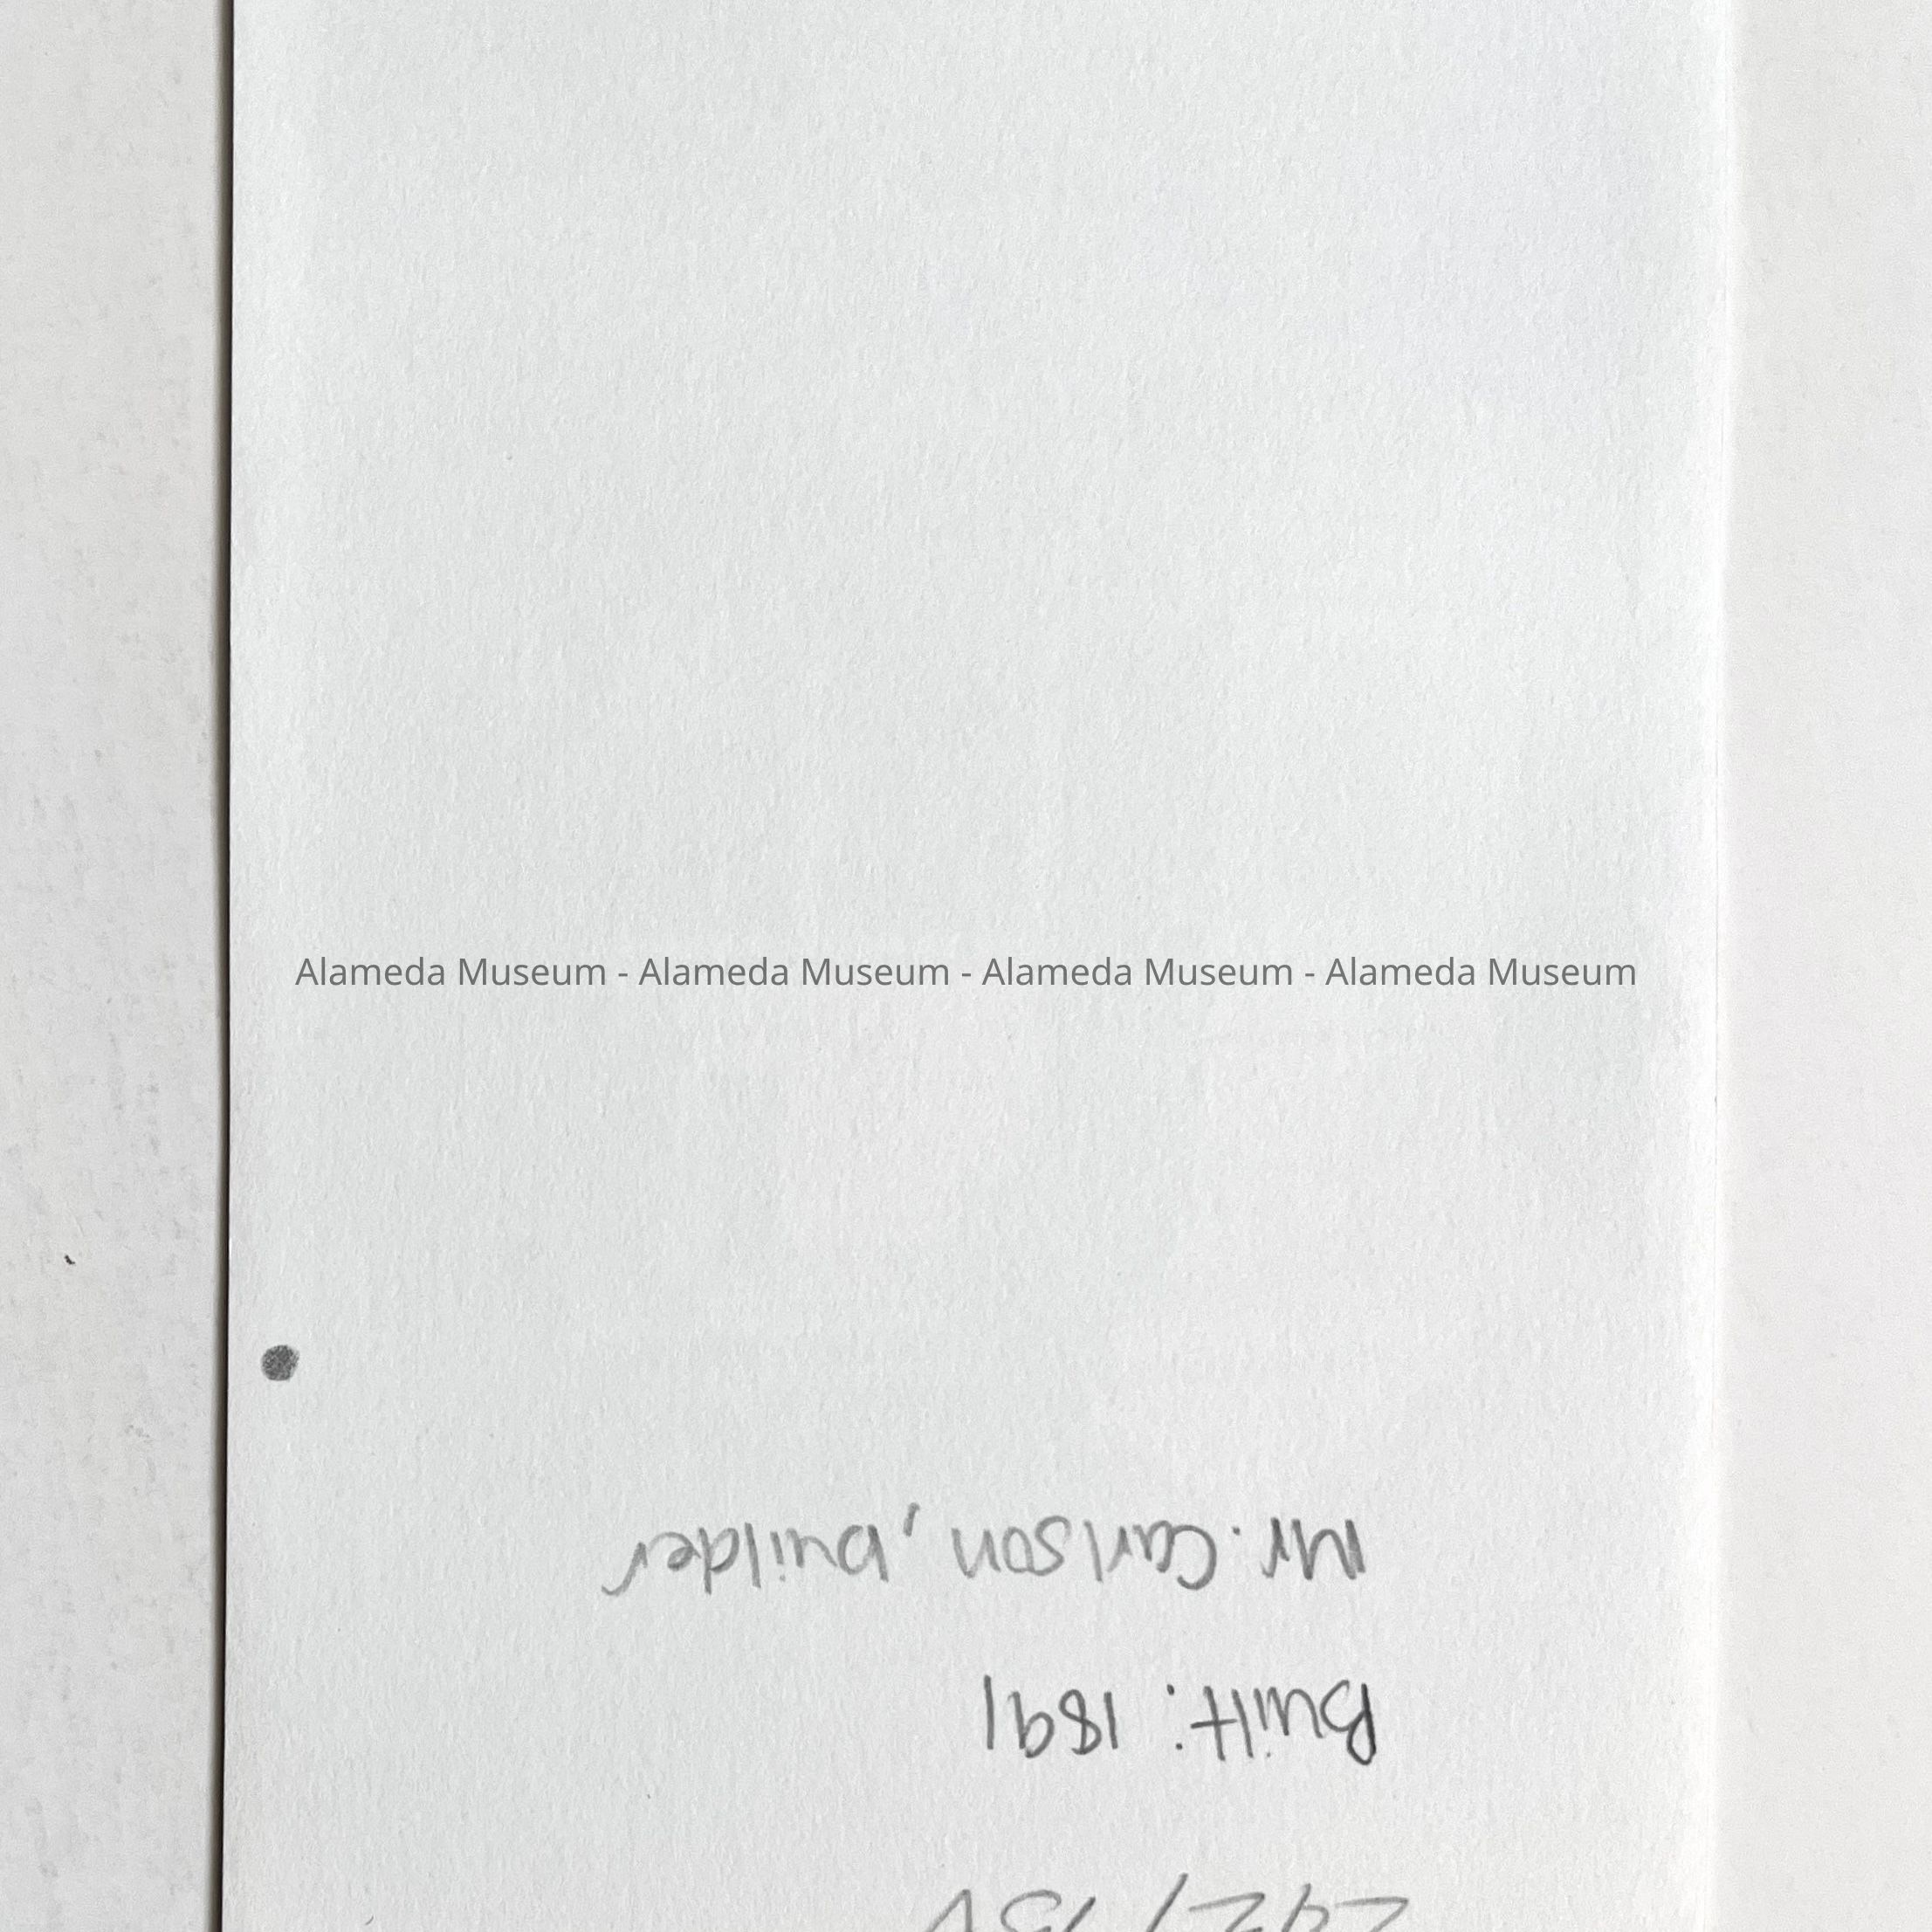 Alameda Museum - Alameda Museum - Alameda Museum - Alameda Museum
Built: 1891
Mr. Carlson, builder